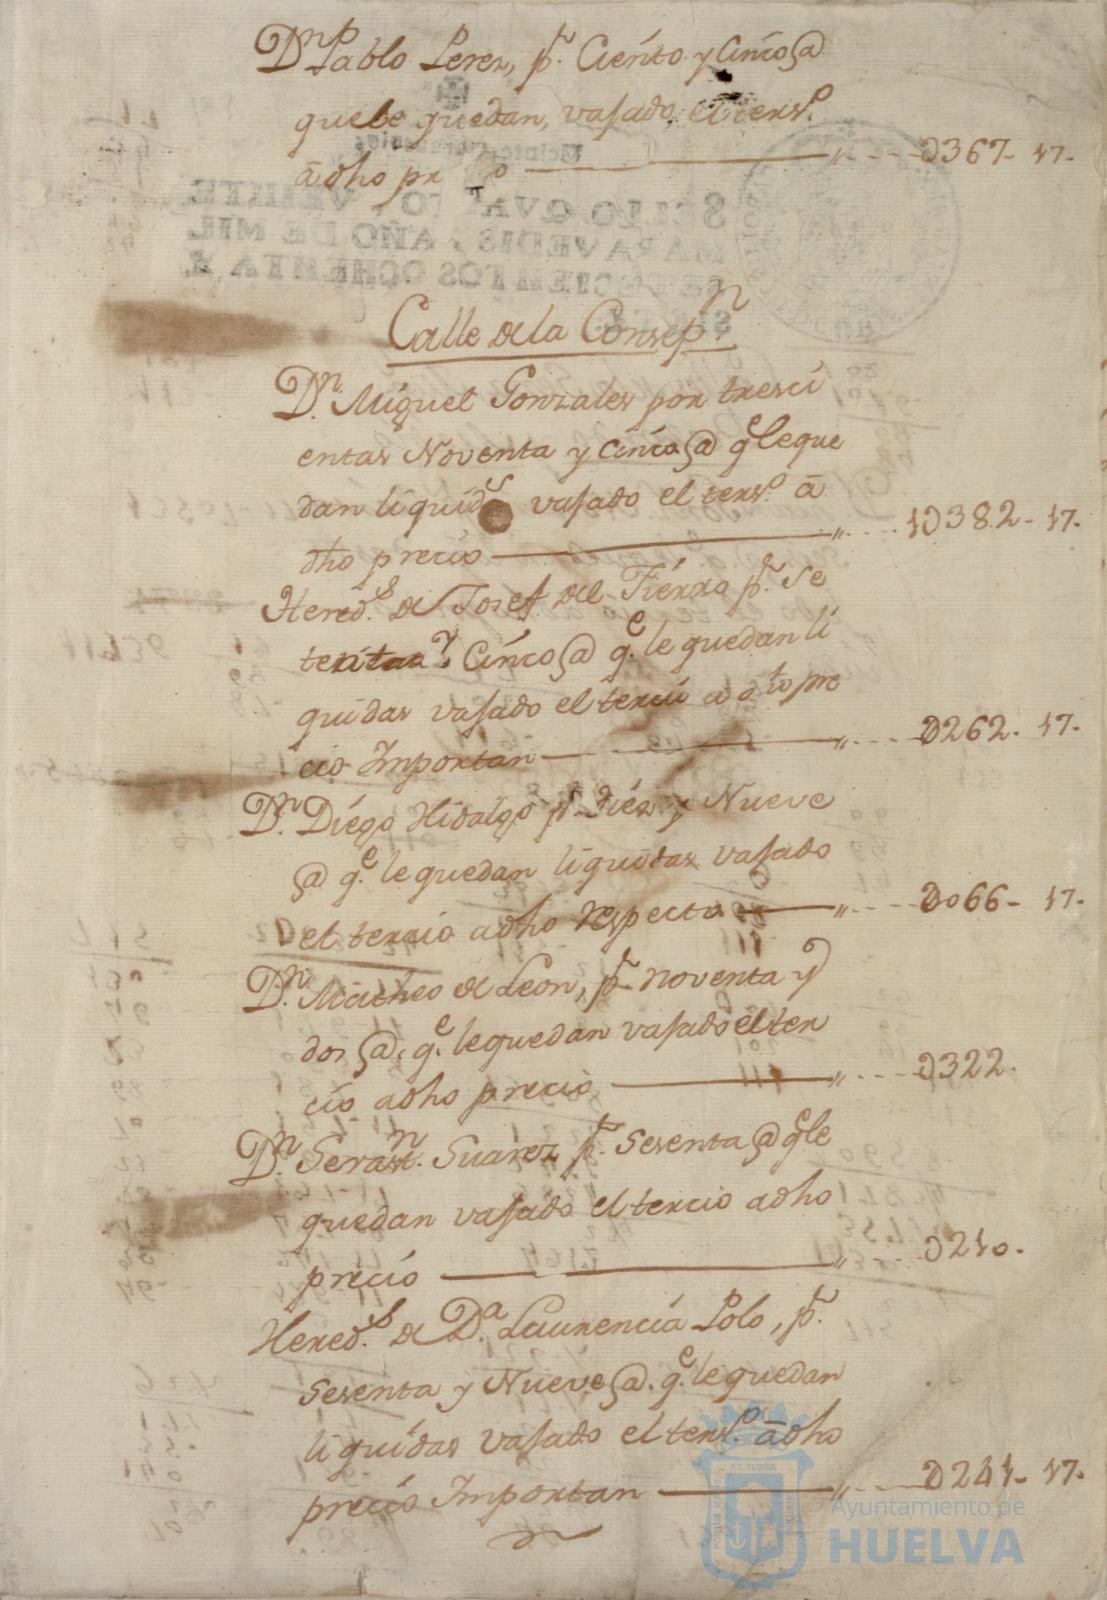 Dn Pablo Perez, pr. Ciento y Cinco @
que le quedan, vasado el terso.
a dho pr o ———— „ - - - Ɔ367- 17-
SELLO QVARTO, VEINTE
MARAVEDIS, AÑO DE MIL
SETECIENTOS OCHENTA Y
Calle de la Consepn.
Dn. Miguel Gonzales por tresci
entas Noventa y cinco @ qe le que
dan liquids vasado el terso. a
dho precio ———— „ - - - 1Ɔ382- 17-
Hereds. de Josef del Fierro pr. se
tenta y Cinco @ qe. le quedan li
quidas vasado el tercio a dto pre
cio Importan ———— „ - - - Ɔ262- 17-
Dn. Diego Hidalgo pr. Diez y Nueve
@ qe. le quedan liquidas vasado
el tercio a dho respecto ———— „ - - - Ɔ066- 17-
Dn. Matheo de Leon, pr. noventa y
dos @. qe. le quedan vasado el ter
cio a dho precio ———— „ - - - Ɔ322.
Dn. Suarez pr. Sesenta @ qe le
quedan vasado el tercio a dho
precio ———— „ - - - Ɔ210.
Hereds. de Da. Laurencia Polo, pr.
Sesenta y Nueve @. qe. le quedan
liquidas vasado el terso. a dho
precio Importan ———— „ - - - Ɔ241- 17-
Ayuntamiento de
HUELVA